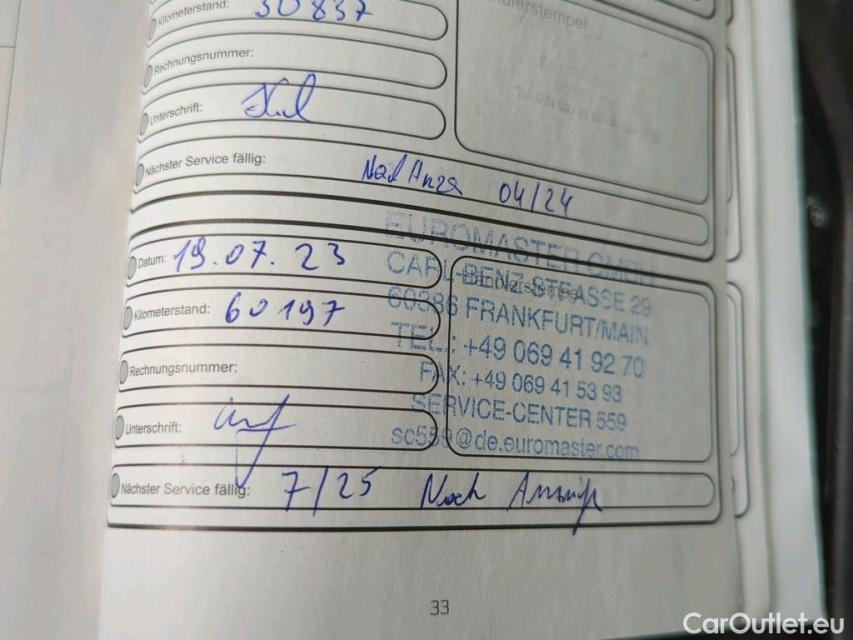 Kilometerstand: 30837
Händlerstempel
Rechnungsnummer:
Unterschrift:
Nächster Service fällig: 04/24
EUROMASTER GMBH
Datum: 19.07.23
CARL-BENZ-STRASSE 29
Händlerstempel
Kilometerstand: 60197
60386 FRANKFURT/MAIN
TEL.: +49 069 41 92 70
Rechnungsnummer:
FAX: +49 069 41 53 93
SERVICE-CENTER 559
Unterschrift:
sc559@de.euromaster.com
Nächster Service fällig: 7/25 Nach Anzeige
33
CarOutlet.eu